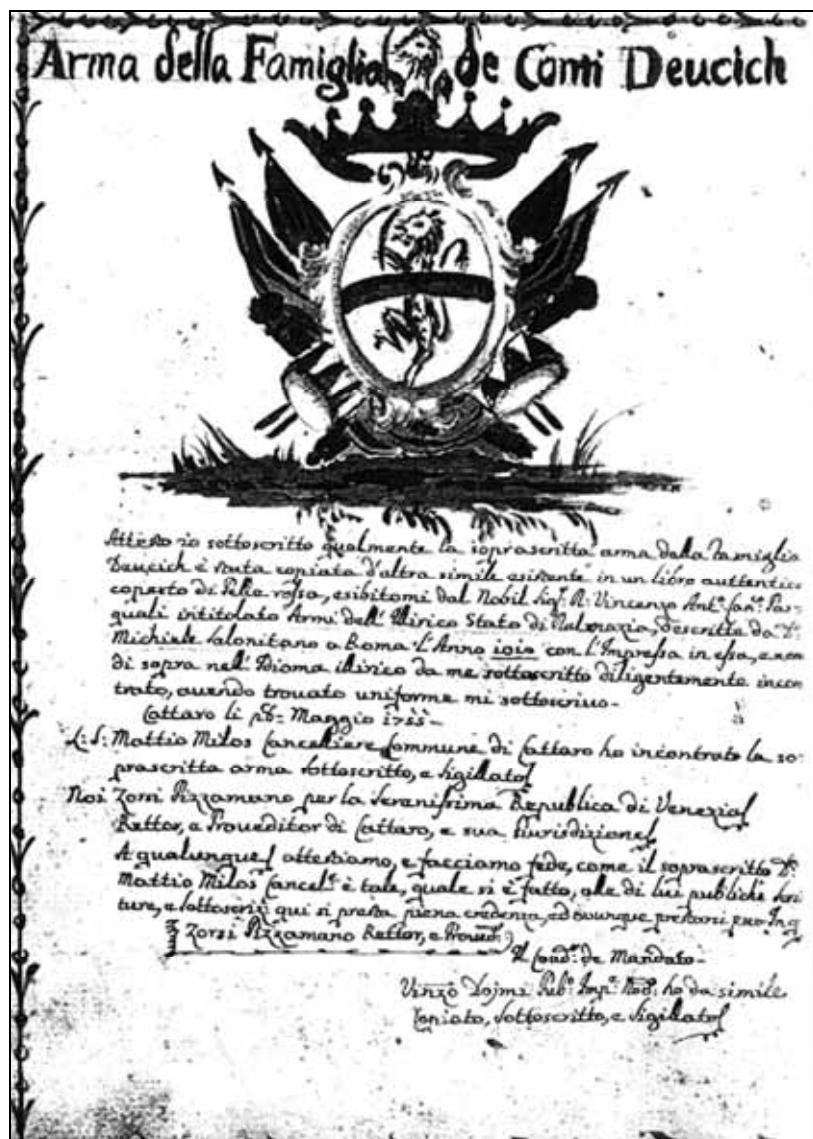 Arma della Famiglia de Conti Deucich
Attesto io sottoscritto qualmente la soprascritta arma dalla Famiglia
Deucich è stata copiata d'altra simile esistente in un libro auttentico
coperto di Pelle rossa, esibitomi dal Nobil Sig.r Vincenzo Ant.o Pas:
quali intitolato Armi dell' Illirico Stato di descritte da
Michiele Salonitano a Roma l'Anno 1010 con l'Impressa in essa, e
di sopra nell' Idioma illirico da me sottoscritto diligentemente incon
trato, avendo trovato uniforme mi sottoscrivo-
Cattaro li Maggio 1755-
L: S: Mattio Milos Cancelliere Commune di Cattaro ho incontrato la so:
prascritta arma sottoscritto, e sigillato
Noi Zorsi Pizzamano per la Serenissima Republica di Venezia
Rettor, e Proveditor di Cattaro, e sua Giurisdizione
A qualunque attestiamo, e facciamo fede, come il soprascritto
Mattio Milos Cancel.r è tale, quale si è fatto, alle di lui publiche scri
ture, e sottoscriz qui si presta piena credenza, ed ovunque
Zorsi Pizzamano Rettor, e Proved.
Il de Mandato-
Vinzo Dojmi ho da simile
Copiato, Sottoscritto, e Sigillato